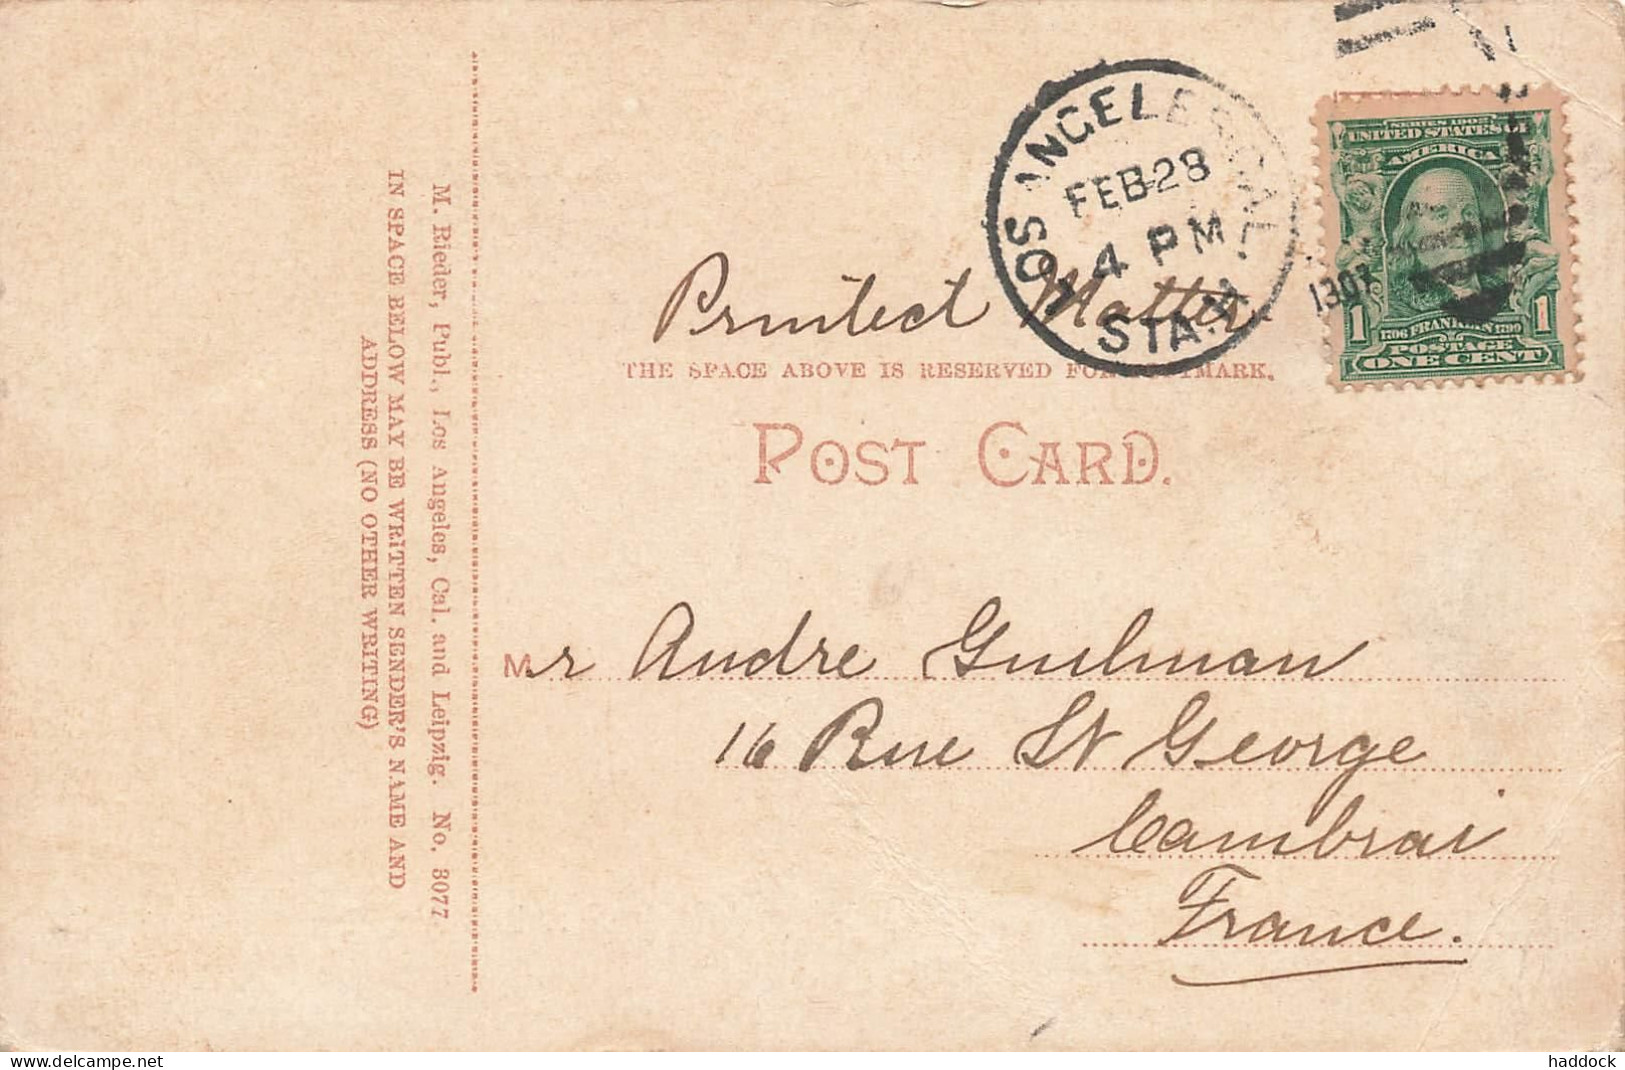 LOS ANGELES, CAL.
FEB 28
4 PM
1907
STA. 
SERIES 1902
UNITED STATES OF
AMERICA
1706 FRANKLIN 1790
POSTAGE
1 ONE CENT 1
Printed Matter.
THE SPACE ABOVE IS RESERVED FOR POSTMARK.
POST CARD.
Mr Andre Guilman
16 Rue St George
Cambrai
France.
M. Rieder, Publ., Los Angeles, Cal. and Leipzig. No. 3077
IN SPACE BELOW MAY BE WRITTEN SENDER'S NAME AND
ADDRESS (NO OTHER WRITING)
haddock